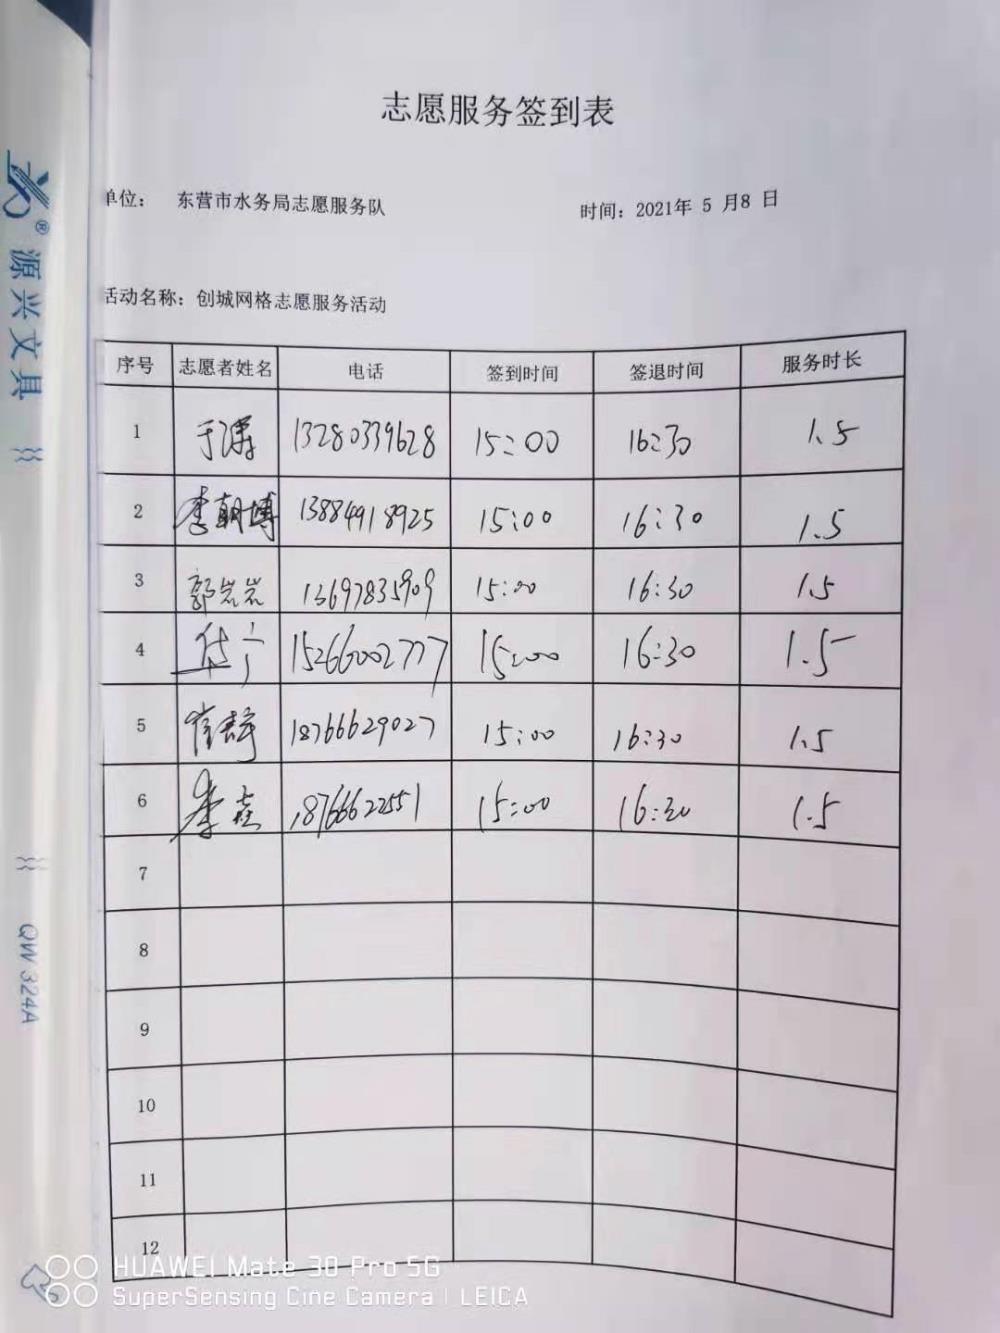 志愿服务签到表
单位： 东营市水务局志愿服务队 时间：2021年 5 月8 日
活动名称：创城网格志愿服务活动
序号 志愿者姓名 电话 签到时间 签退时间 服务时长
1 于涛 13280339628 15:00 16:30 1.5
2 李朝博 13884918925 15:00 16:30 1.5
3 郭岩岩 13697835909 15:00 16:30 1.5
4 15266002777 15:00 16:30 1.5
5 崔静 18766629027 15:00 16:30 1.5
6 李 18766622551 15:00 16:30 1.5
7
8
9
10
11
12
源兴文具
QW324A
HUAWEI Mate 30 Pro 5G
SuperSensing Cine Camera | LEICA